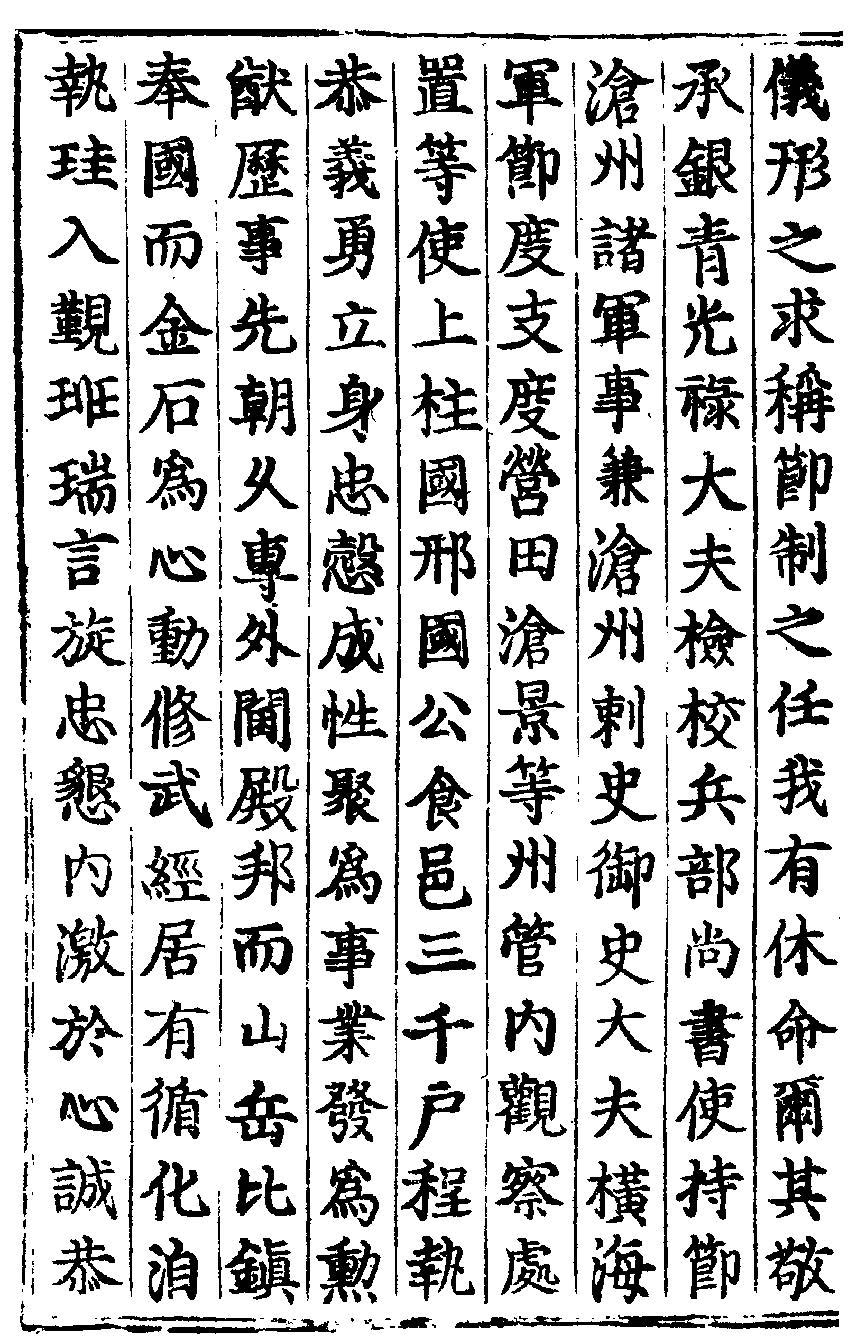 儀形之求稱節制之任我有休命爾其敬
承銀青光祿大夫檢校兵部尚書使持節
滄州諸軍事兼滄州刺史御史大夫橫海
軍節度支度營田滄景等州管内觀察處
置等使上柱國邢國公食邑三千戶程執
恭義勇立身忠慤成性聚爲事業發爲勲
猷歷事先朝久專外閫殿邦而山岳比鎭
奉國而金石爲心動修武經居有循化洎
執珪入覲班瑞言旋忠懇内激於心誠恭